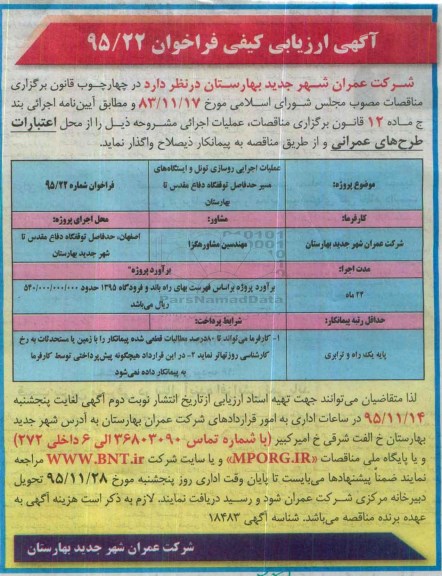 آگهی ارزیابی کیفی فراخوان ۹۵/۲۲
شرکت عمران شهر جدید بهارستان درنظر دارد در چهارچوب قانون برگزاری
مناقصات مصوب مجلس شورای اسلامی مورخ ۸۳/۱۱/۱۷ و مطابق آیین‌نامه اجرائی بند
ج ماده ۱۲ قانون برگزاری مناقصات، عملیات اجرائی مشروحه ذیل را از محل اعتبارات
طرح‌های عمرانی و از طریق مناقصه به پیمانکار ذیصلاح واگذار نماید.
موضوع پروژه: عملیات اجرایی روسازی تونل و ایستگاه‌های مسیر حدفاصل توقفگاه دفاع مقدس تا بهارستان فراخوان شماره ۹۵/۲۲
کارفرما: مشاور: محل اجرای پروژه:
شرکت عمران شهر جدید بهارستان مهندسین مشاور هگزا اصفهان، حدفاصل توقفگاه دفاع مقدس تا شهر جدید بهارستان
مدت اجرا: برآورد پروژه:
۲۳ ماه برآورد پروژه براساس فهرست بهای راه باند و فرودگاه ۱۳۹۵ حدود ۵۴۰/۰۰۰/۰۰۰/۰۰۰ ریال می‌باشد
حداقل رتبه پیمانکار: شرایط پرداخت:
پایه یک راه و ترابری ۱- کارفرما می‌تواند تا ۸۰درصد مطالبات قطعی شده پیمانکار را با زمین یا مستحدثات به رخ
کارشناسی روز تهاتر نماید ۲- در این قرارداد هیچگونه پیش‌پرداختی توسط کارفرما
به پیمانکار داده نمی‌شود
لذا متقاضیان می‌توانند جهت تهیه اسناد ارزیابی از تاریخ انتشار نوبت دوم آگهی لغایت پنجشنبه
۹۵/۱۱/۱۴ در ساعات اداری به امور قراردادهای شرکت عمران بهارستان به آدرس شهر جدید
بهارستان خ الفت شرقی خ امیرکبیر (با شماره تماس ۳۶۸۰۳۰۹۰ الی ۶ داخلی ۲۷۲)
و یا پایگاه ملی مناقصات «MPORG.IR» و یا سایت شرکت WWW.BNT.ir مراجعه
نمایند ضمنا پیشنهادها می‌بایست تا پایان وقت اداری روز پنجشنبه مورخ ۹۵/۱۱/۲۸ تحویل
دبیرخانه مرکزی شرکت عمران شود و رسید دریافت نمایند. لازم به ذکر است هزینه آگهی به
عهده برنده مناقصه می‌باشد. شناسه آگهی ۱۸۴۸۳
شرکت عمران شهر جدید بهارستان